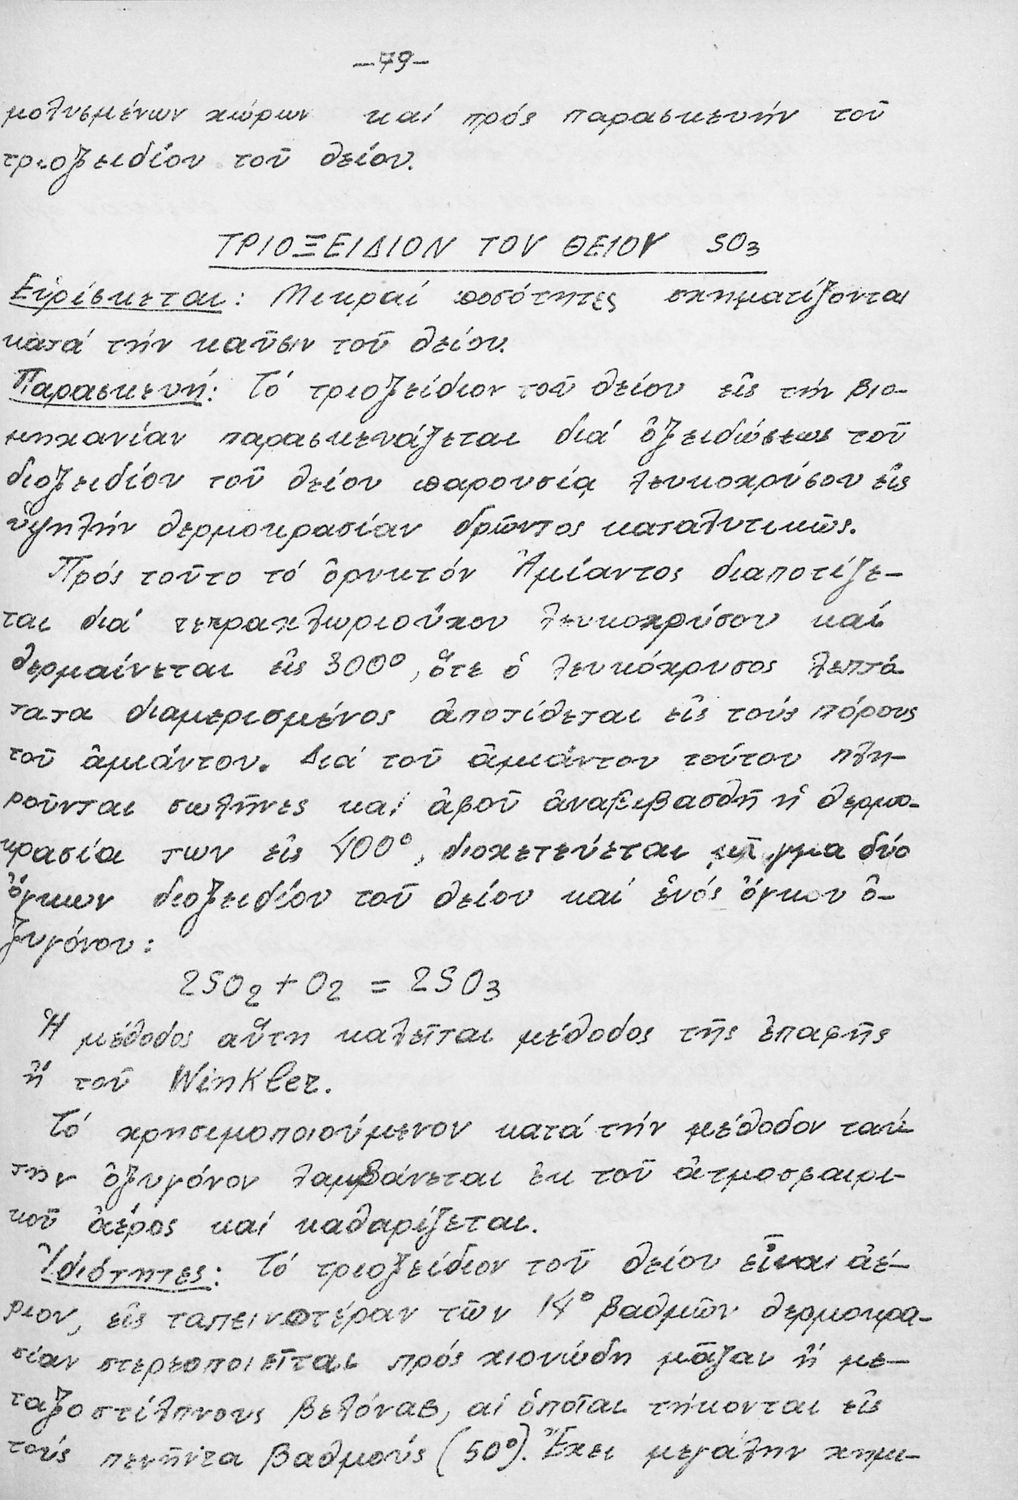 -79-
μολυσμένων χώρων καί πρός παρασκευήν τοῦ
τριοξειδίου τοῦ θείου.
ΤΡΙΟΞΕΙΔΙΟΝ ΤΟΥ ΘΕΙΟΥ SO3
Εὑρίσκεται: Μικραί ποσότητες σχηματίζονται
κατά τήν καῦσιν τοῦ θείου.
Παρασκευή: Τό τριοξείδιον τοῦ θείου εἰς τήν βιο-
μηχανίαν παρασκευάζεται διά ὀξειδώσεως τοῦ
διοξειδίου τοῦ θείου παρουσίᾳ λευκοχρύσου εἰς
ὑψηλήν θερμοκρασίαν δρῶντος καταλυτικῶς.
Πρός τοῦτο τό ὀρυκτόν Ἀμίαντος διαποτίζε-
ται διά τετραχλωριούχου λευκοχρύσου καί
θερμαίνεται εἰς 300°, ὅτε ὁ λευκόχρυσος λεπτό
τατα διαμερισμένος ἀποτίθεται εἰς τούς πόρους
τοῦ ἀμιάντου. Διά τοῦ ἀμιάντου τούτου πλη-
ροῦνται σωλῆνες καί ἀφοῦ ἀναβιβασθῆ ἡ θερμο-
κρασία των εἰς 400°, διοχετεύεται μῖγμα δύο
ὄγκων διοξειδίου τοῦ θείου καί ἑνός ὄγκου ὀ-
ξυγόνου:
2SO2 + O2 = 2SO3
Ἡ μέθοδος αὕτη καλεῖται μέθοδος τῆς ἐπαφῆς
ἤ τοῦ Winkler.
Τό χρησιμοποιούμενον κατά τήν μέθοδον ταύ
την ὀξυγόνον λαμβάνεται ἐκ τοῦ ἀτμοσφαιρι-
κοῦ ἀέρος καί καθαρίζεται.
Ἰδιότητες: Τό τριοξείδιον τοῦ θείου εἶναι ἀέ-
ριον, εἰς ταπεινοτέραν τῶν 14° βαθμῶν θερμοκρα-
σίαν στερεοποιεῖται πρός χιονώδη μᾶζαν ἤ με-
ταξοστίλπνους βελόνας, αἱ ὁποῖαι τήκονται εἰς
τούς πενῆντα βαθμούς (50°). Ἔχει μεγάλην χημι-